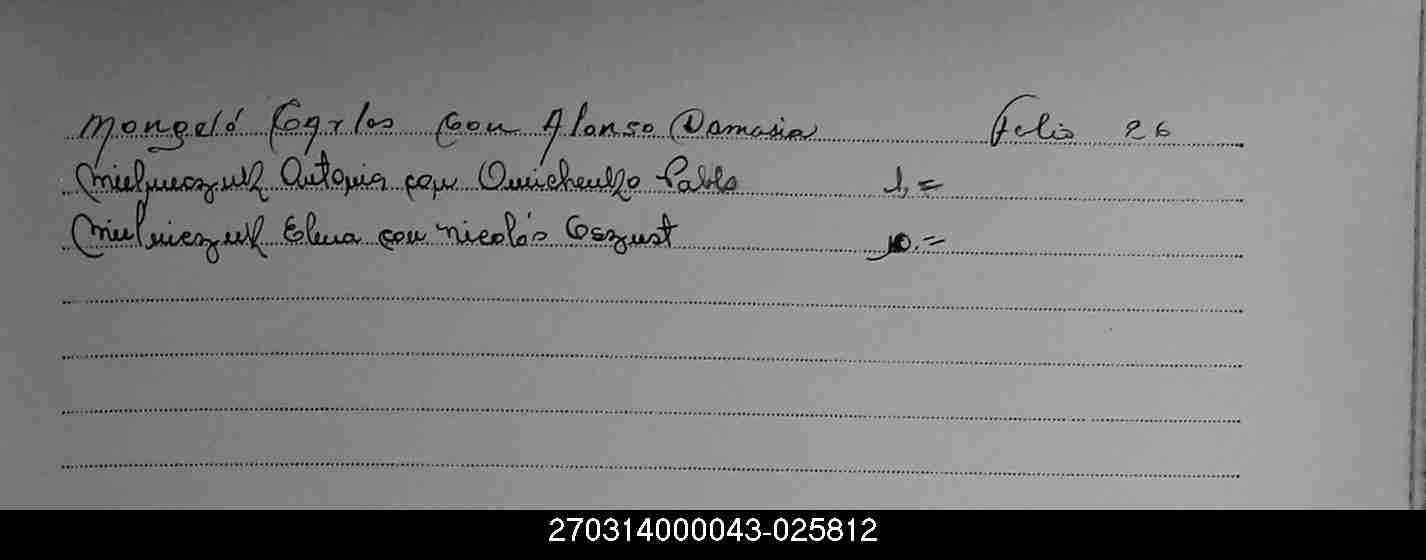 Mongeló Carlos con Alonso Damasia Folio 26
Mielniczuk Antonia con Omichenko Pablo 1,=
Mielniczuk Elena con Nicolás 10.=
270314000043-025812